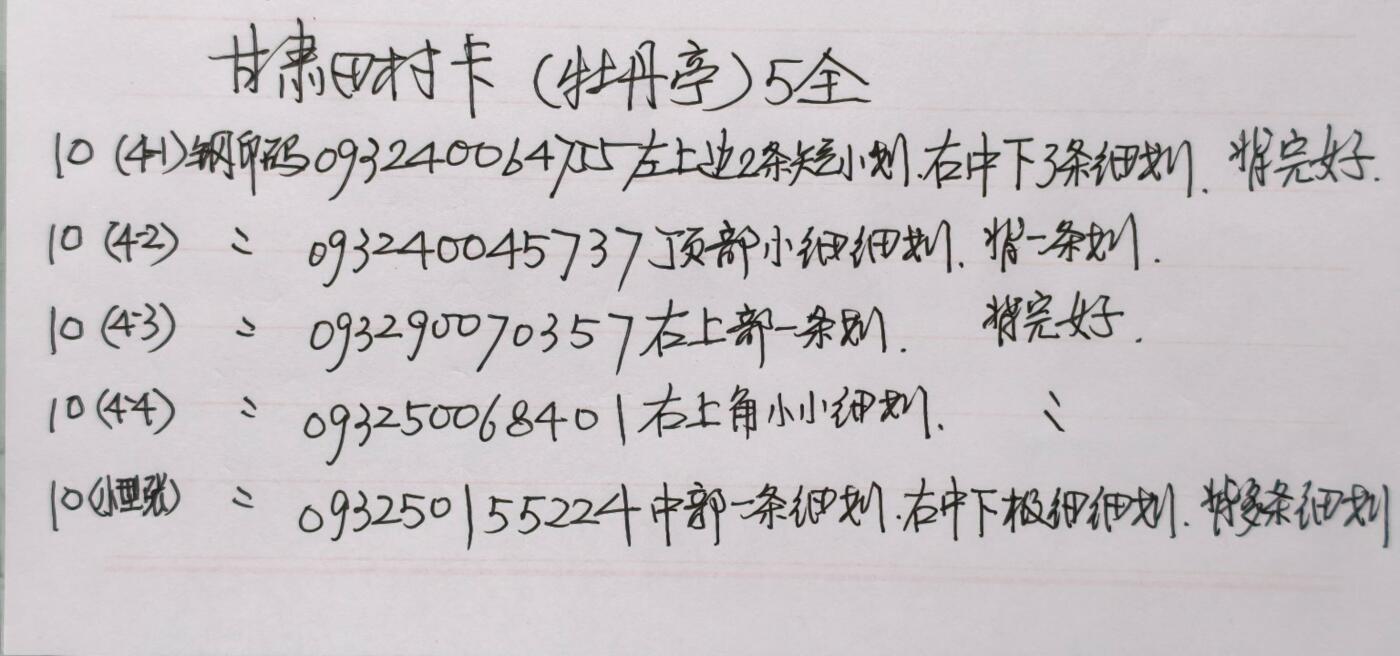 甘肃田村卡（牡丹亭）5全
10（4-1）钢印码093240064755左上边2条短小划.右中下3条细划.背完好.
10（4-2） 〃 093240045737顶部小细细划.背一条划.
10（4-3） 〃 093290070357右上部一条划. 背完好.
10（4-4） 〃 093250068401右上角小小细划. 〃
10（小型张） 〃 093250155224中部一条细划.右中下极细细划.背多条细划